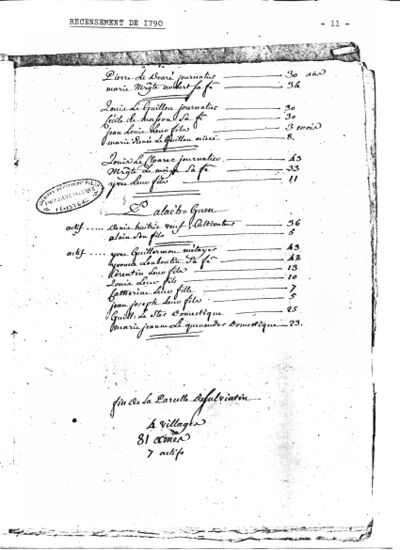 RECENSEMENT DE 1790
- 11 -
Pierre Le Doaré journalier 30 ans
marie Mgte sa fe 36
Louis Le Guillou journalier 30
Cécile sa fe 30
jean Louis leur fils 3 mois
marie Renée Le Guillou niéce 8
Louis Le Floarec journalier 43
Mgte Le moign sa fe 33
yves leur fils 11
Palach-Guen
actif Denis veuf cultivateur 36
alain son fils 5
actif yves Guillermou métayer 43
sa fe 42
Corentin leur fils 13
Louis leur fils 10
Catherine leur fille 7
jean joseph leur fils 5
Guill: Le Domestique 25
marie jeanne Le Domestique 23.
fin de La Parcelle
4 villages
81 ames
7 actifs